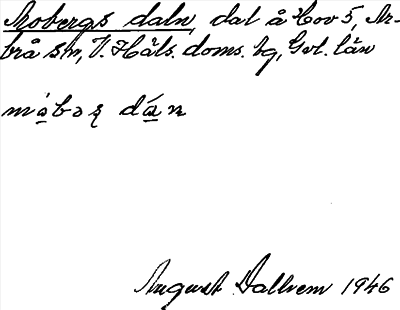 Mobergs daln, dal å Hov 5, Ar-
brå sn, V. Häls. doms. hg, Gvl. län
måbəʂ dán
August 1946